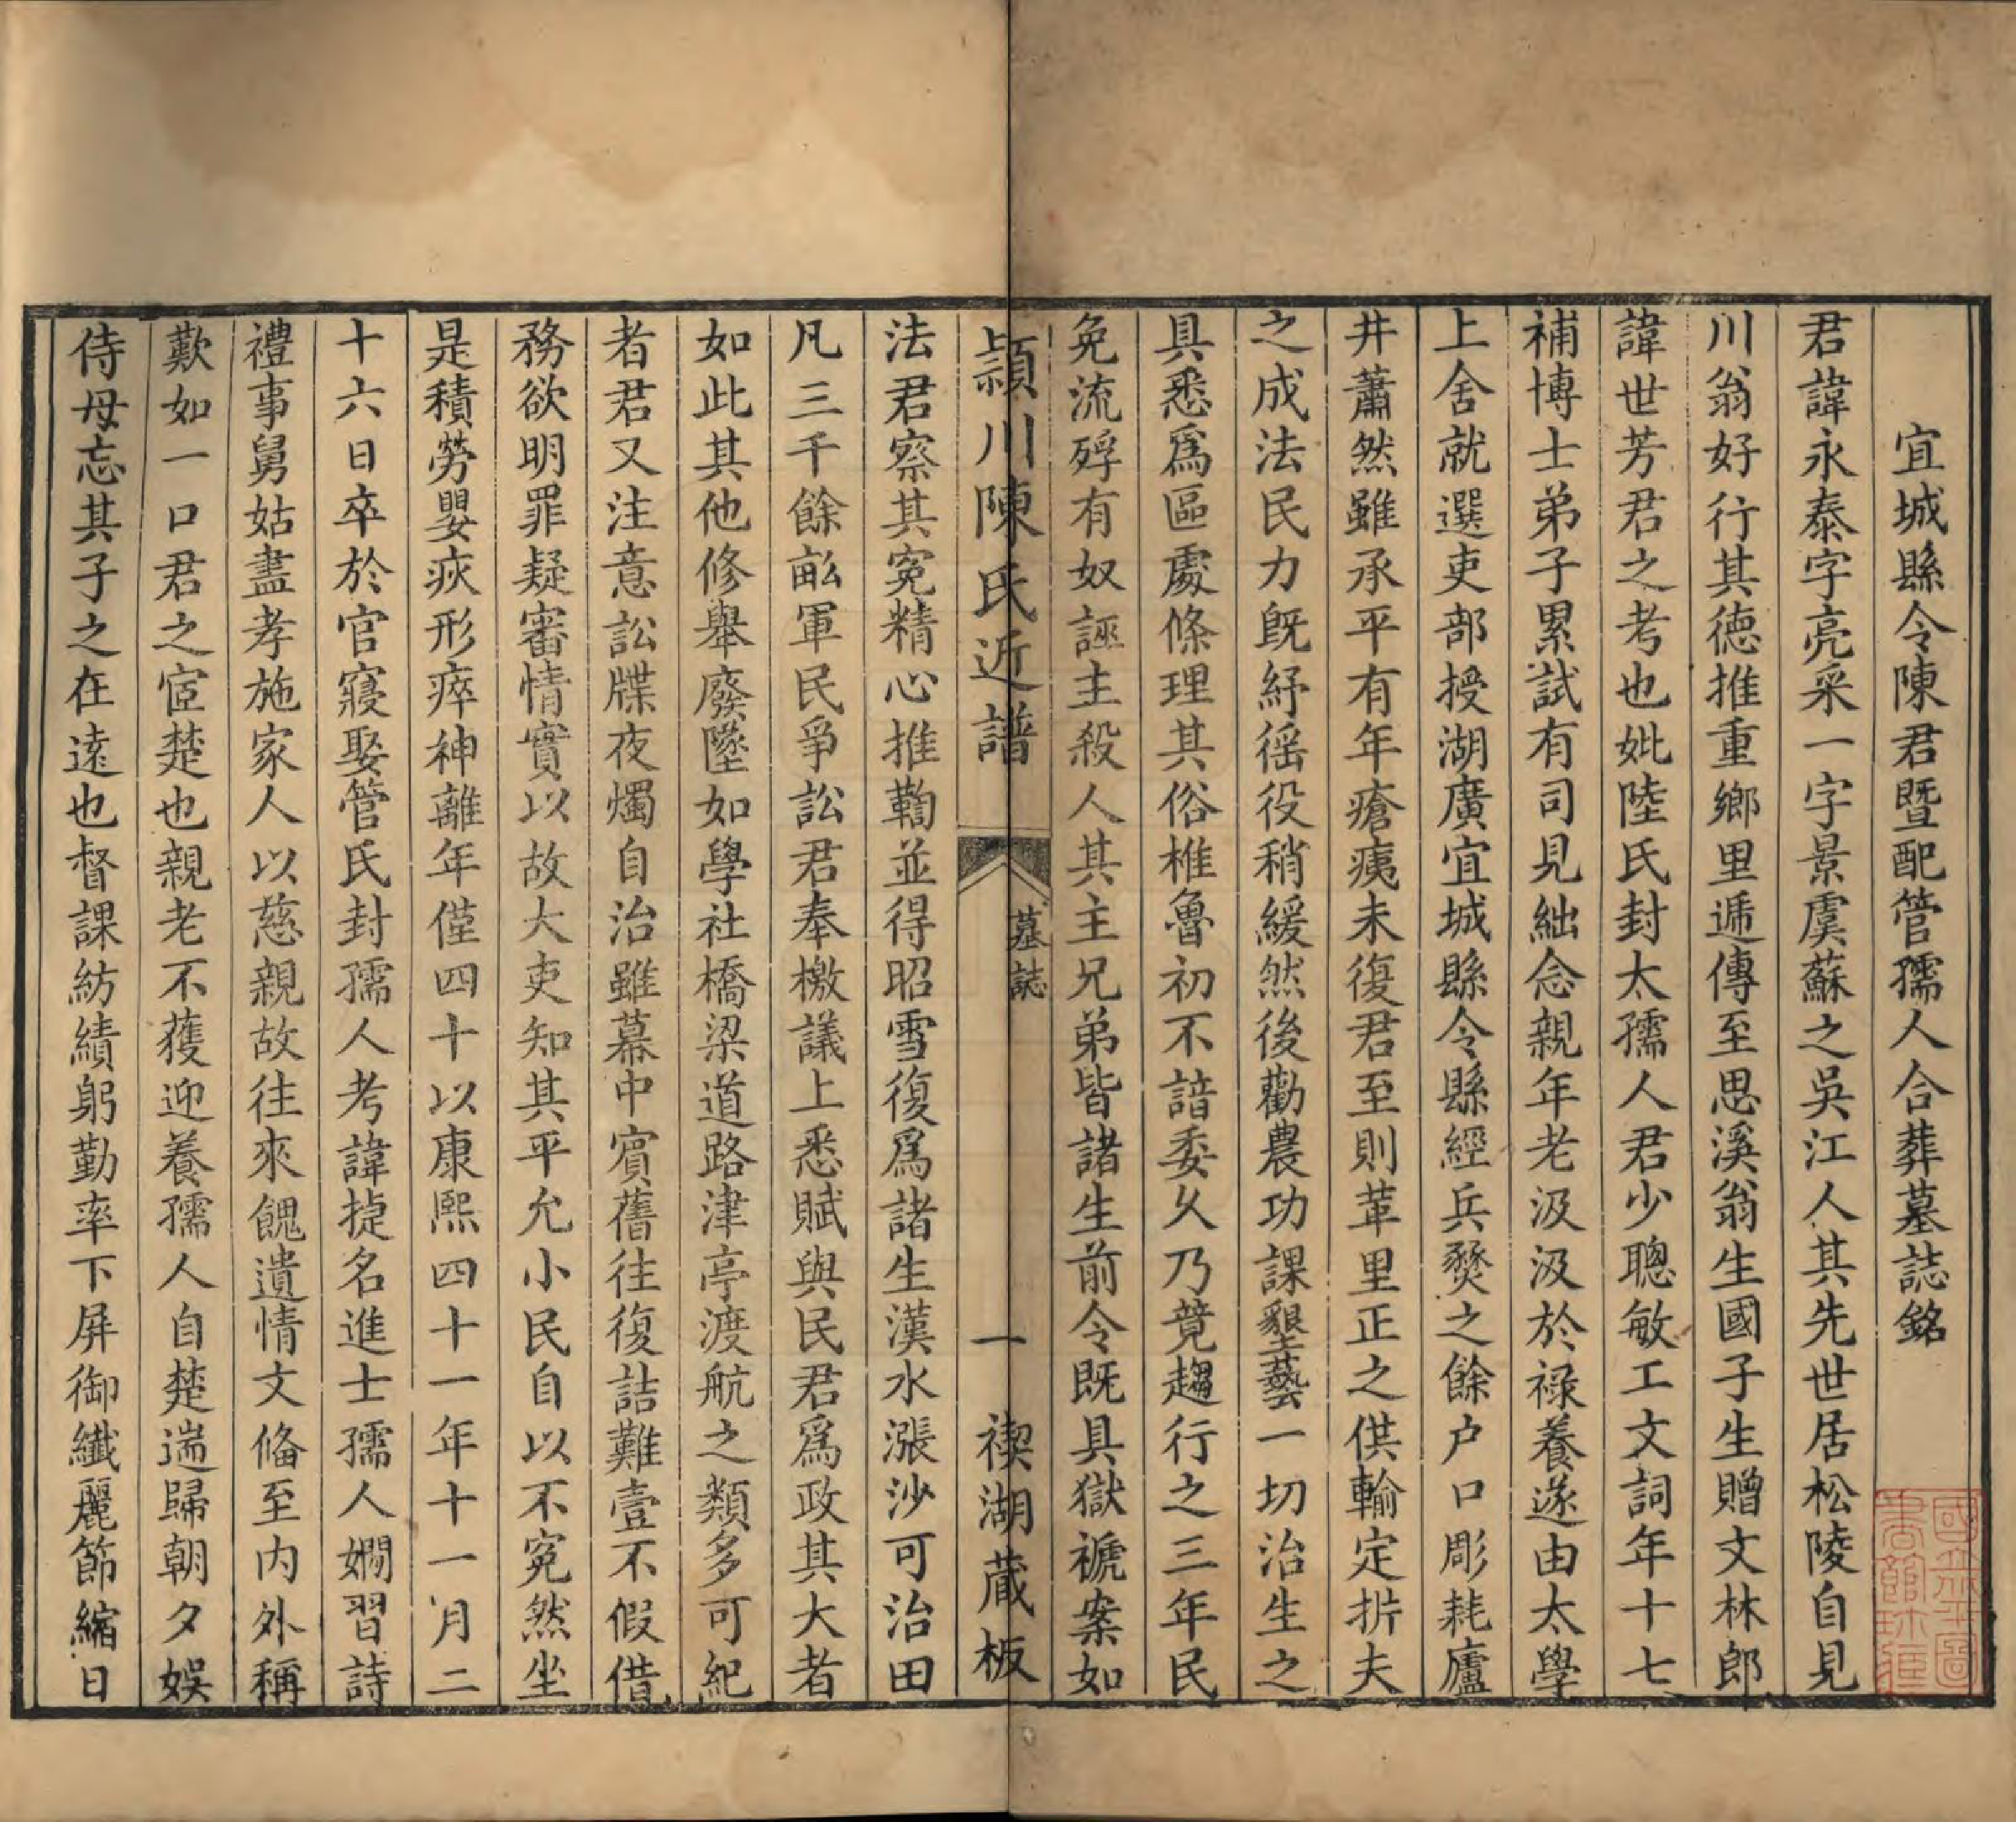 宜城縣令陳君暨配管孺人合葬墓誌銘
君諱永泰字亮采一字景虞蘇之吳江人其先世居松陵自見
川翁好行其德推重鄉里遞傳至思溪翁生國子生贈文林郎
諱世芳君之考也妣陸氏封太孺人君少聰敏工文詞年十七
補博士弟子累試有司見絀念親年老汲汲於祿養遂由太學
上舍就選吏部授湖廣宜城縣令縣經兵燹之餘户口彫耗廬
井蕭然雖承平有年瘡痍未復君至則革里正之供輸定折夫
之成法民力旣紓徭役稍緩然後勸農功課墾藝一切治生之
具悉爲區處條理其俗椎魯初不諳委乆乃竟趨行之三年民
免流殍有奴誣主殺人其主兄弟皆諸生前令既具獄褫案如
潁川陳氏近譜
墓誌
一
禊湖蔵板
法君察其寃精心推鞫並得昭雪復爲諸生漢水漲沙可治田
凡三千餘畆軍民爭訟君奉檄議上悉賦與民君爲政其大者
如此其他修舉廢墜如學社橋梁道路津亭渡航之類多可紀
者君又注意訟牒夜燭自治雖幕中賓舊往復詰難壹不假借
務欲明罪疑審情實以故大吏知其平允小民自以不寃然坐
是積勞嬰疢形瘁神離年僅四十以康熙四十一年十一月二
十六日卒於官寢娶管氏封孺人考諱捷名進士孺人嫺習詩
禮事舅姑盡孝施家人以慈親故往來餽遺情文俻至内外稱
歎如一口君之宦楚也親老不獲迎養孺人自楚遄歸朝夕娛
侍母忘其子之在遠也督課紡績躬勤率下屏御纖麗節縮日
國立北平圖
書館珍藏